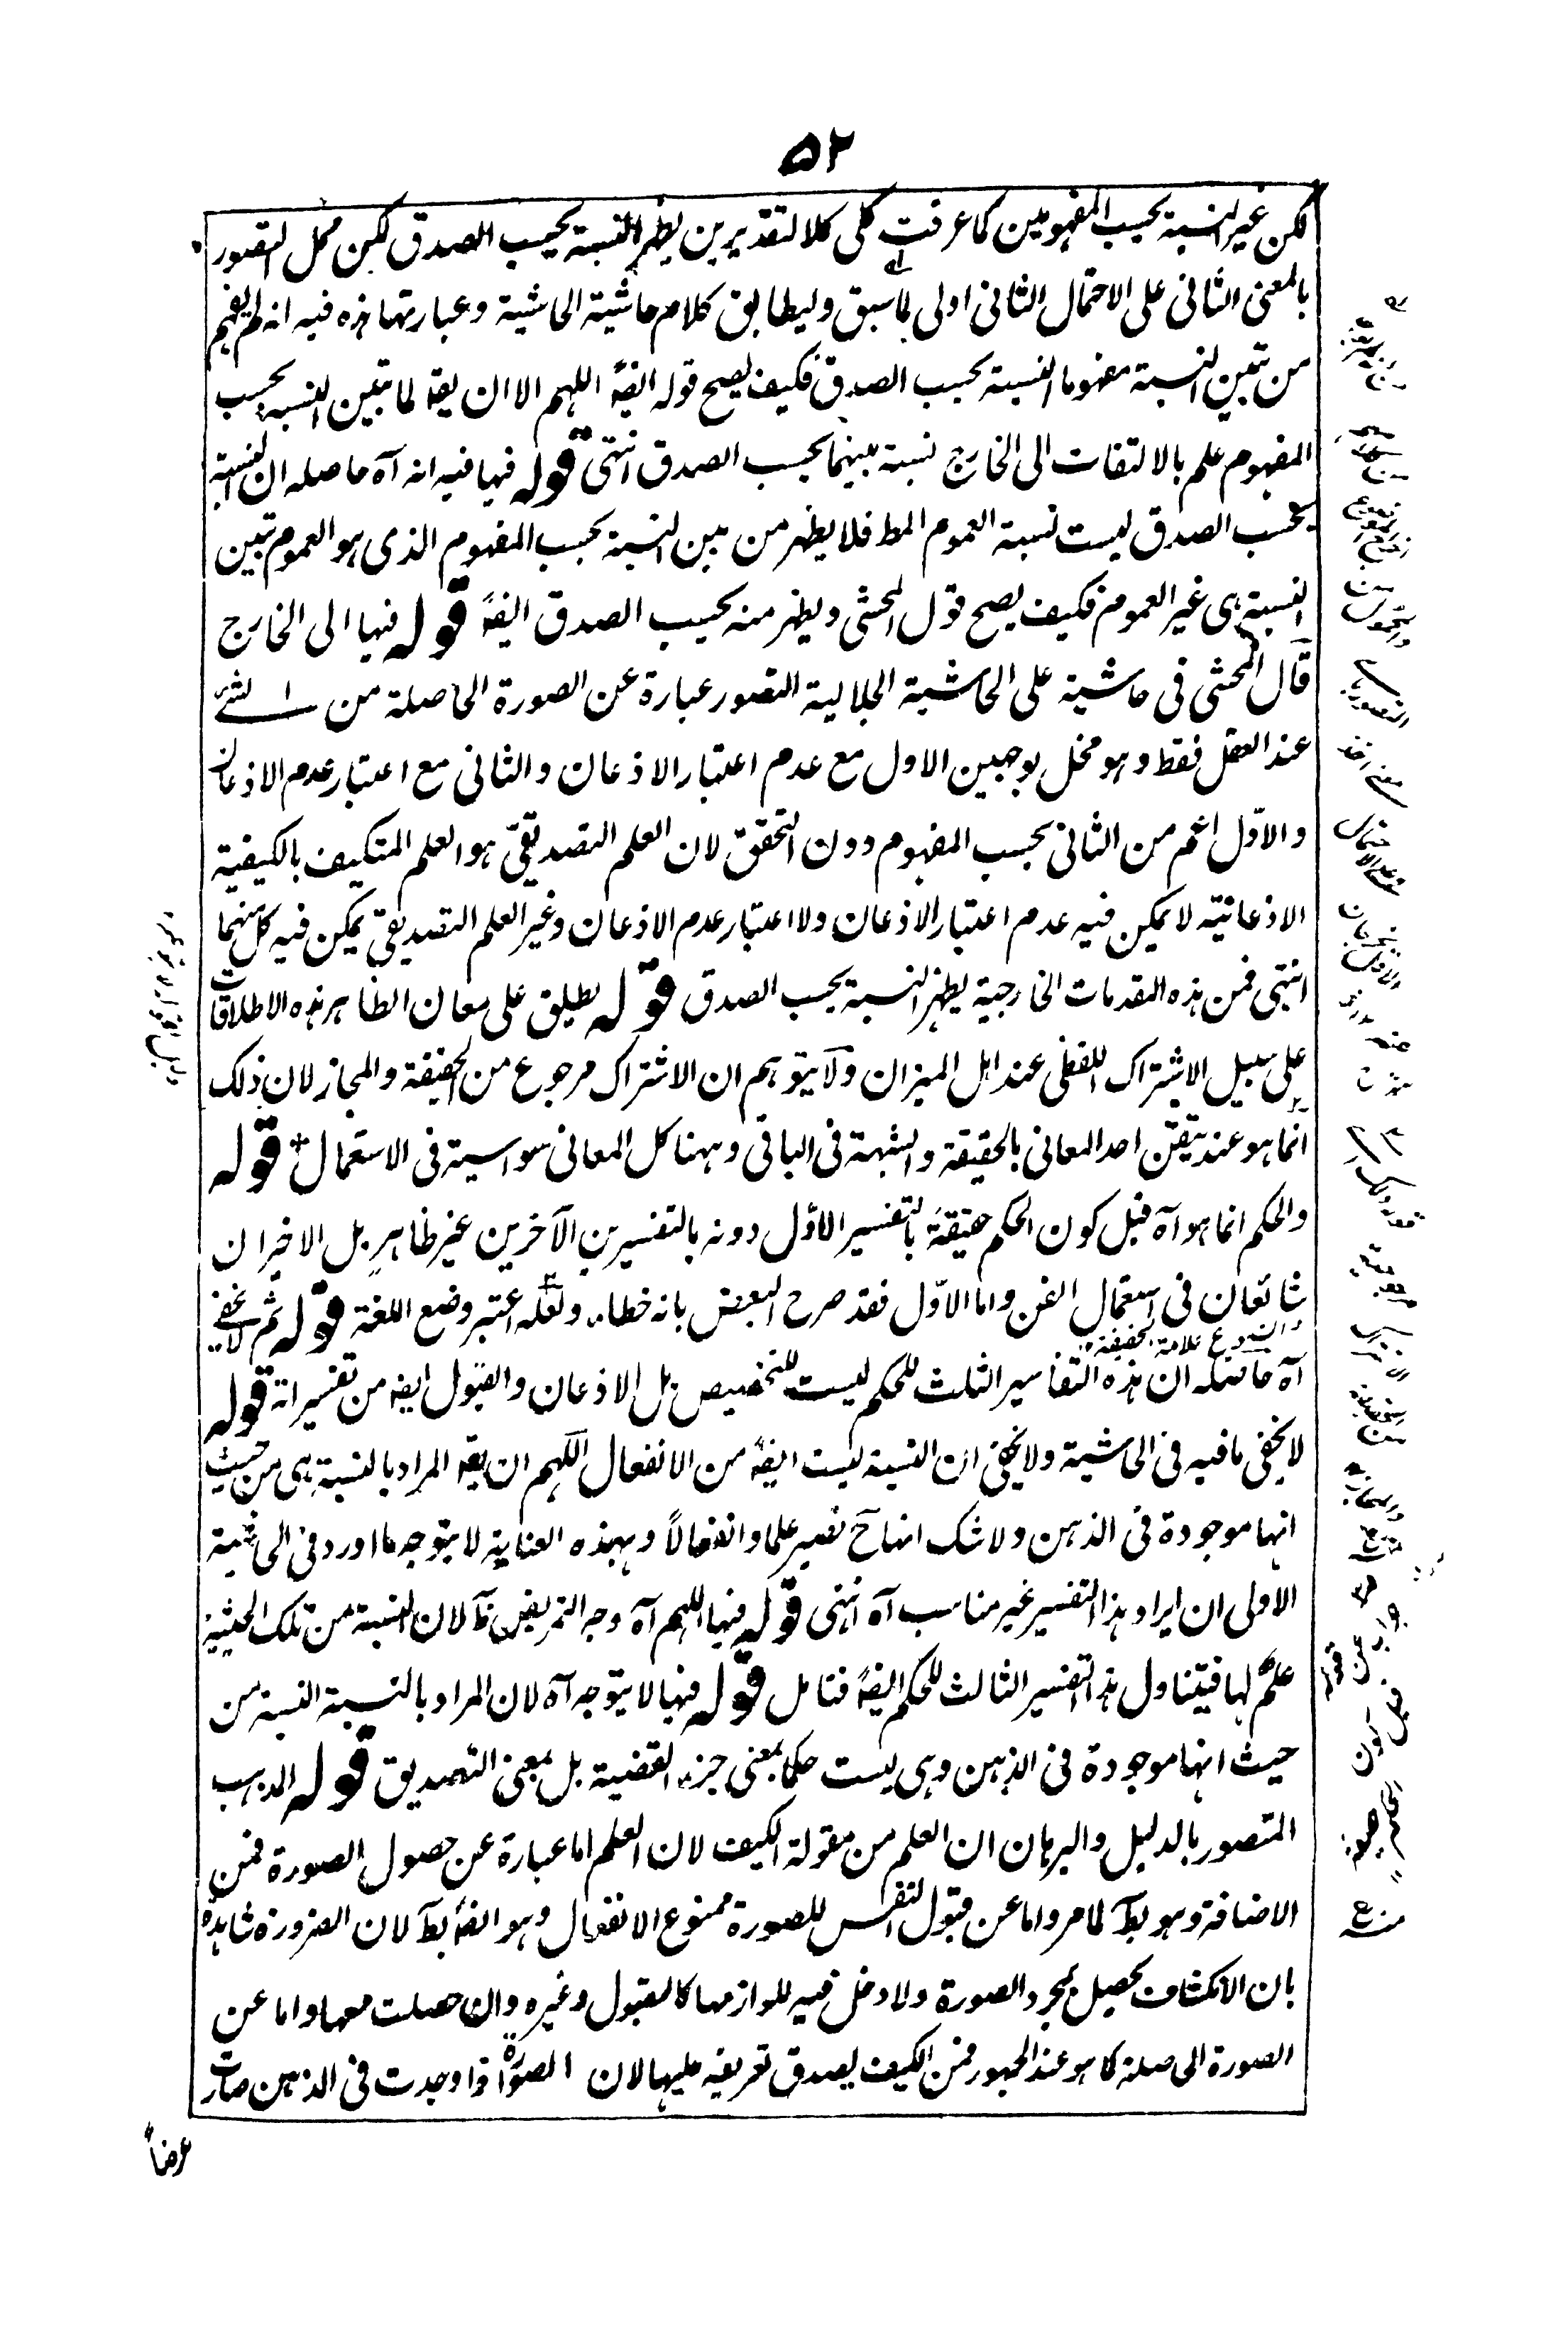 ۵۲
لكن غير النسبة بحسب المفهومين كما عرفت كلى كلا التقديرين يظهر النسبة بحسب الصدق لكن محل التصور
بالمعنى الثانى على الاحتمال الثانى اولى لما سبق وليطابق كلام حاشية الحاشية وعبارتها هذه فيه انه لم يفهم
من تبين النسبة مفهوما النسبة بحسب الصدق فكيف يصح قوله ايضً اللهم الا ان يقه لما تبين النسبة بحسب
المفهوم علم بالالتفات الى الخارج نسبة بينهما بحسب الصدق انتهى قوله فيها فيه انه آه حاصله ان النسبة
بحسب الصدق ليست نسبة العموم المط فلا يظهر من بين النسبة بحسب المفهوم الذى هو العموم تبين
النسبة هى غير العموم فكيف يصح قول المحشى ويظهر منه بحسب الصدق ايضً قوله فيها الى الخارج
قال المحشى فى حاشية على الحاشية الجلالية التصور عبارة عن الصورة الحاصلة من الشئ
عند العقل فقط وهو مخل بوجهين الاول مع عدم اعتبار الاذعان والثانى مع اعتبار عدم الاذعان
والاوّل اعم من الثانى بحسب المفهوم دون التحقق لان العلم التصديقىّ هو العلم المتكيف بالكيفية
الاذعانية لا يمكن فيه عدم اعتبار الاذعان ولا اعتبار عدم الاذعان وغير العلم التصديقى يمكن فيه كل منهما
انتهى فمن هذه المقدمات الخارجية يظهر النسبة بحسب الصدق قوله يطلق على معان الظاهر هذه الاطلاقات
على سبيل الاشتراك اللفظى عند اهل الميزان ولا يتوهم ان الاشتراك مرجوع من الحقيقة والمجاز لان ذلك
انما هو عند تيقن احد المعانى بالحقيقة والشبهة فى الباقى وههنا كل المعانى سواسية فى الاستعمال قوله
والحكم انما هو آه قبل كون الحكم حقيقة بالتفسير الاوّل دونه بالتفسيرين الآخرين غير ظاهر بل الاخيران
شائعان فى استعمال الفن واما الاوّل فقد صرح البعض بانه خطاء ولعله اعتبر وضع اللغة قوله ثم لا يخفى
والشيوع علامة الحقيقة
آه حاصله ان هذه التفاسير الثلث للحكم ليست للتخصيص بل الاذعان والقبول ايضه من تفسيراته قوله
لا يخفى ما فيه فى الحاشية ولا يخفى ان النسبة ليست ايضً من الانفعال اللهم ان يقه المراد بالنسبة هى من حيث
انها موجودة فى الذهن ولا شك انها ح تصير علما وانفعالاً وبهذه العناية لا يتوجه ما اورد فى الحاشية
الاولى ان ايراد هذا التفسير غير مناسب آه انتهى قوله فيها اللهم آه وجه التمريض ظآ لان النسبة من تلك الحيثية
علم لها فيتناول هذا التفسير الثالث للحكم ايضً فتامل قوله فيها لا يتوجه آه لان المراد بالنسبة النسبة من
حيث انها موجودة فى الذهن وهى ليست حكما بمعنى جزء القضية بل بمعنى التصديق قوله المذهب
المتصور بالدليل والبرهان ان العلم من مقولة الكيف لان العلم اما عبارة عن حصول الصورة فمن
الاضافة وهو بط لما مر واما عن قبول النفس للصورة ممنوع الانفعال وهو ايضً بط لان الضرورة شاهدة
بان الانكشاف يحصيل بمجرد الصورة ولا دخل فيه للوازمها كالقبول وغيره وان حصلت معها واما عن
الصورة الحاصلة كما هو عند الجمهور فمن الكيف يصدق تعريفه عليها لان الصورة اذا وجدت فى الذهن صارت
عرضاً
جواب عن قوله
قبل كون
الحكم حقيقة
منہ